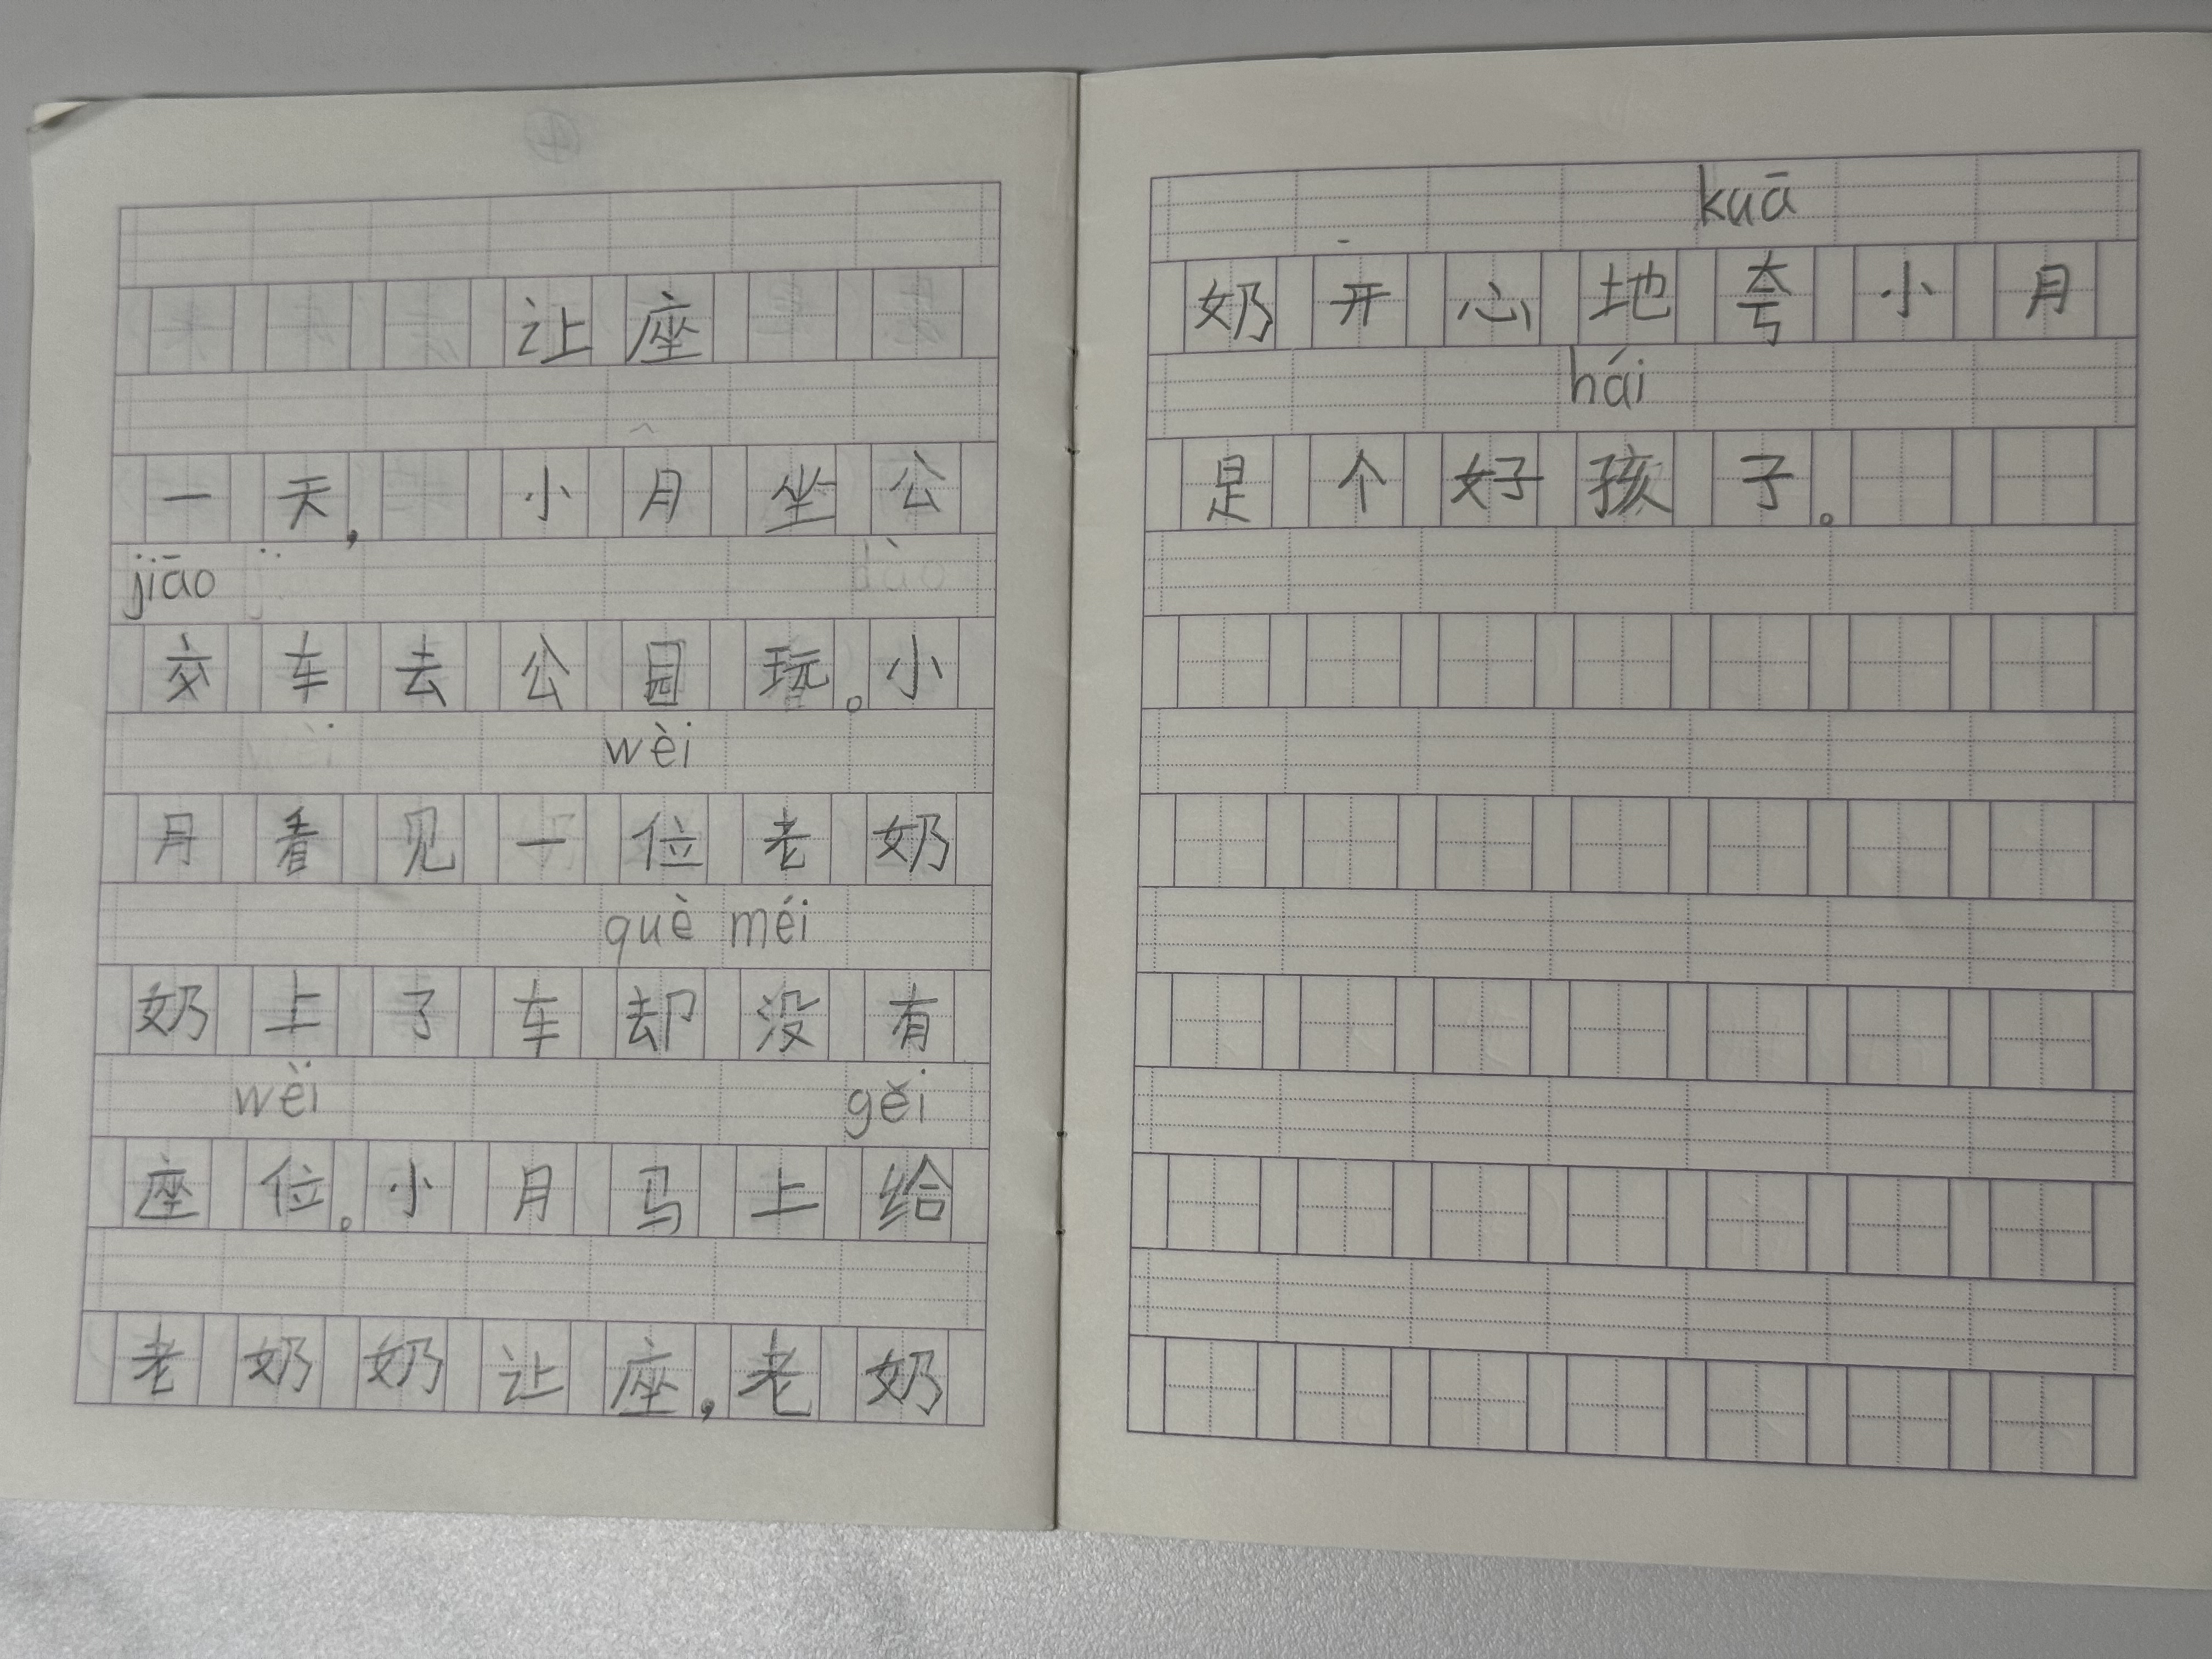 让座
一天，小月坐公
jiāo
交车去公园玩。小
wèi
月看见一位老奶
què méi
奶上了车却没有
wèi gěi
座位。小月马上给
老奶奶让座，老奶
kuā
奶开心地夸小月
hái
是个好孩子。